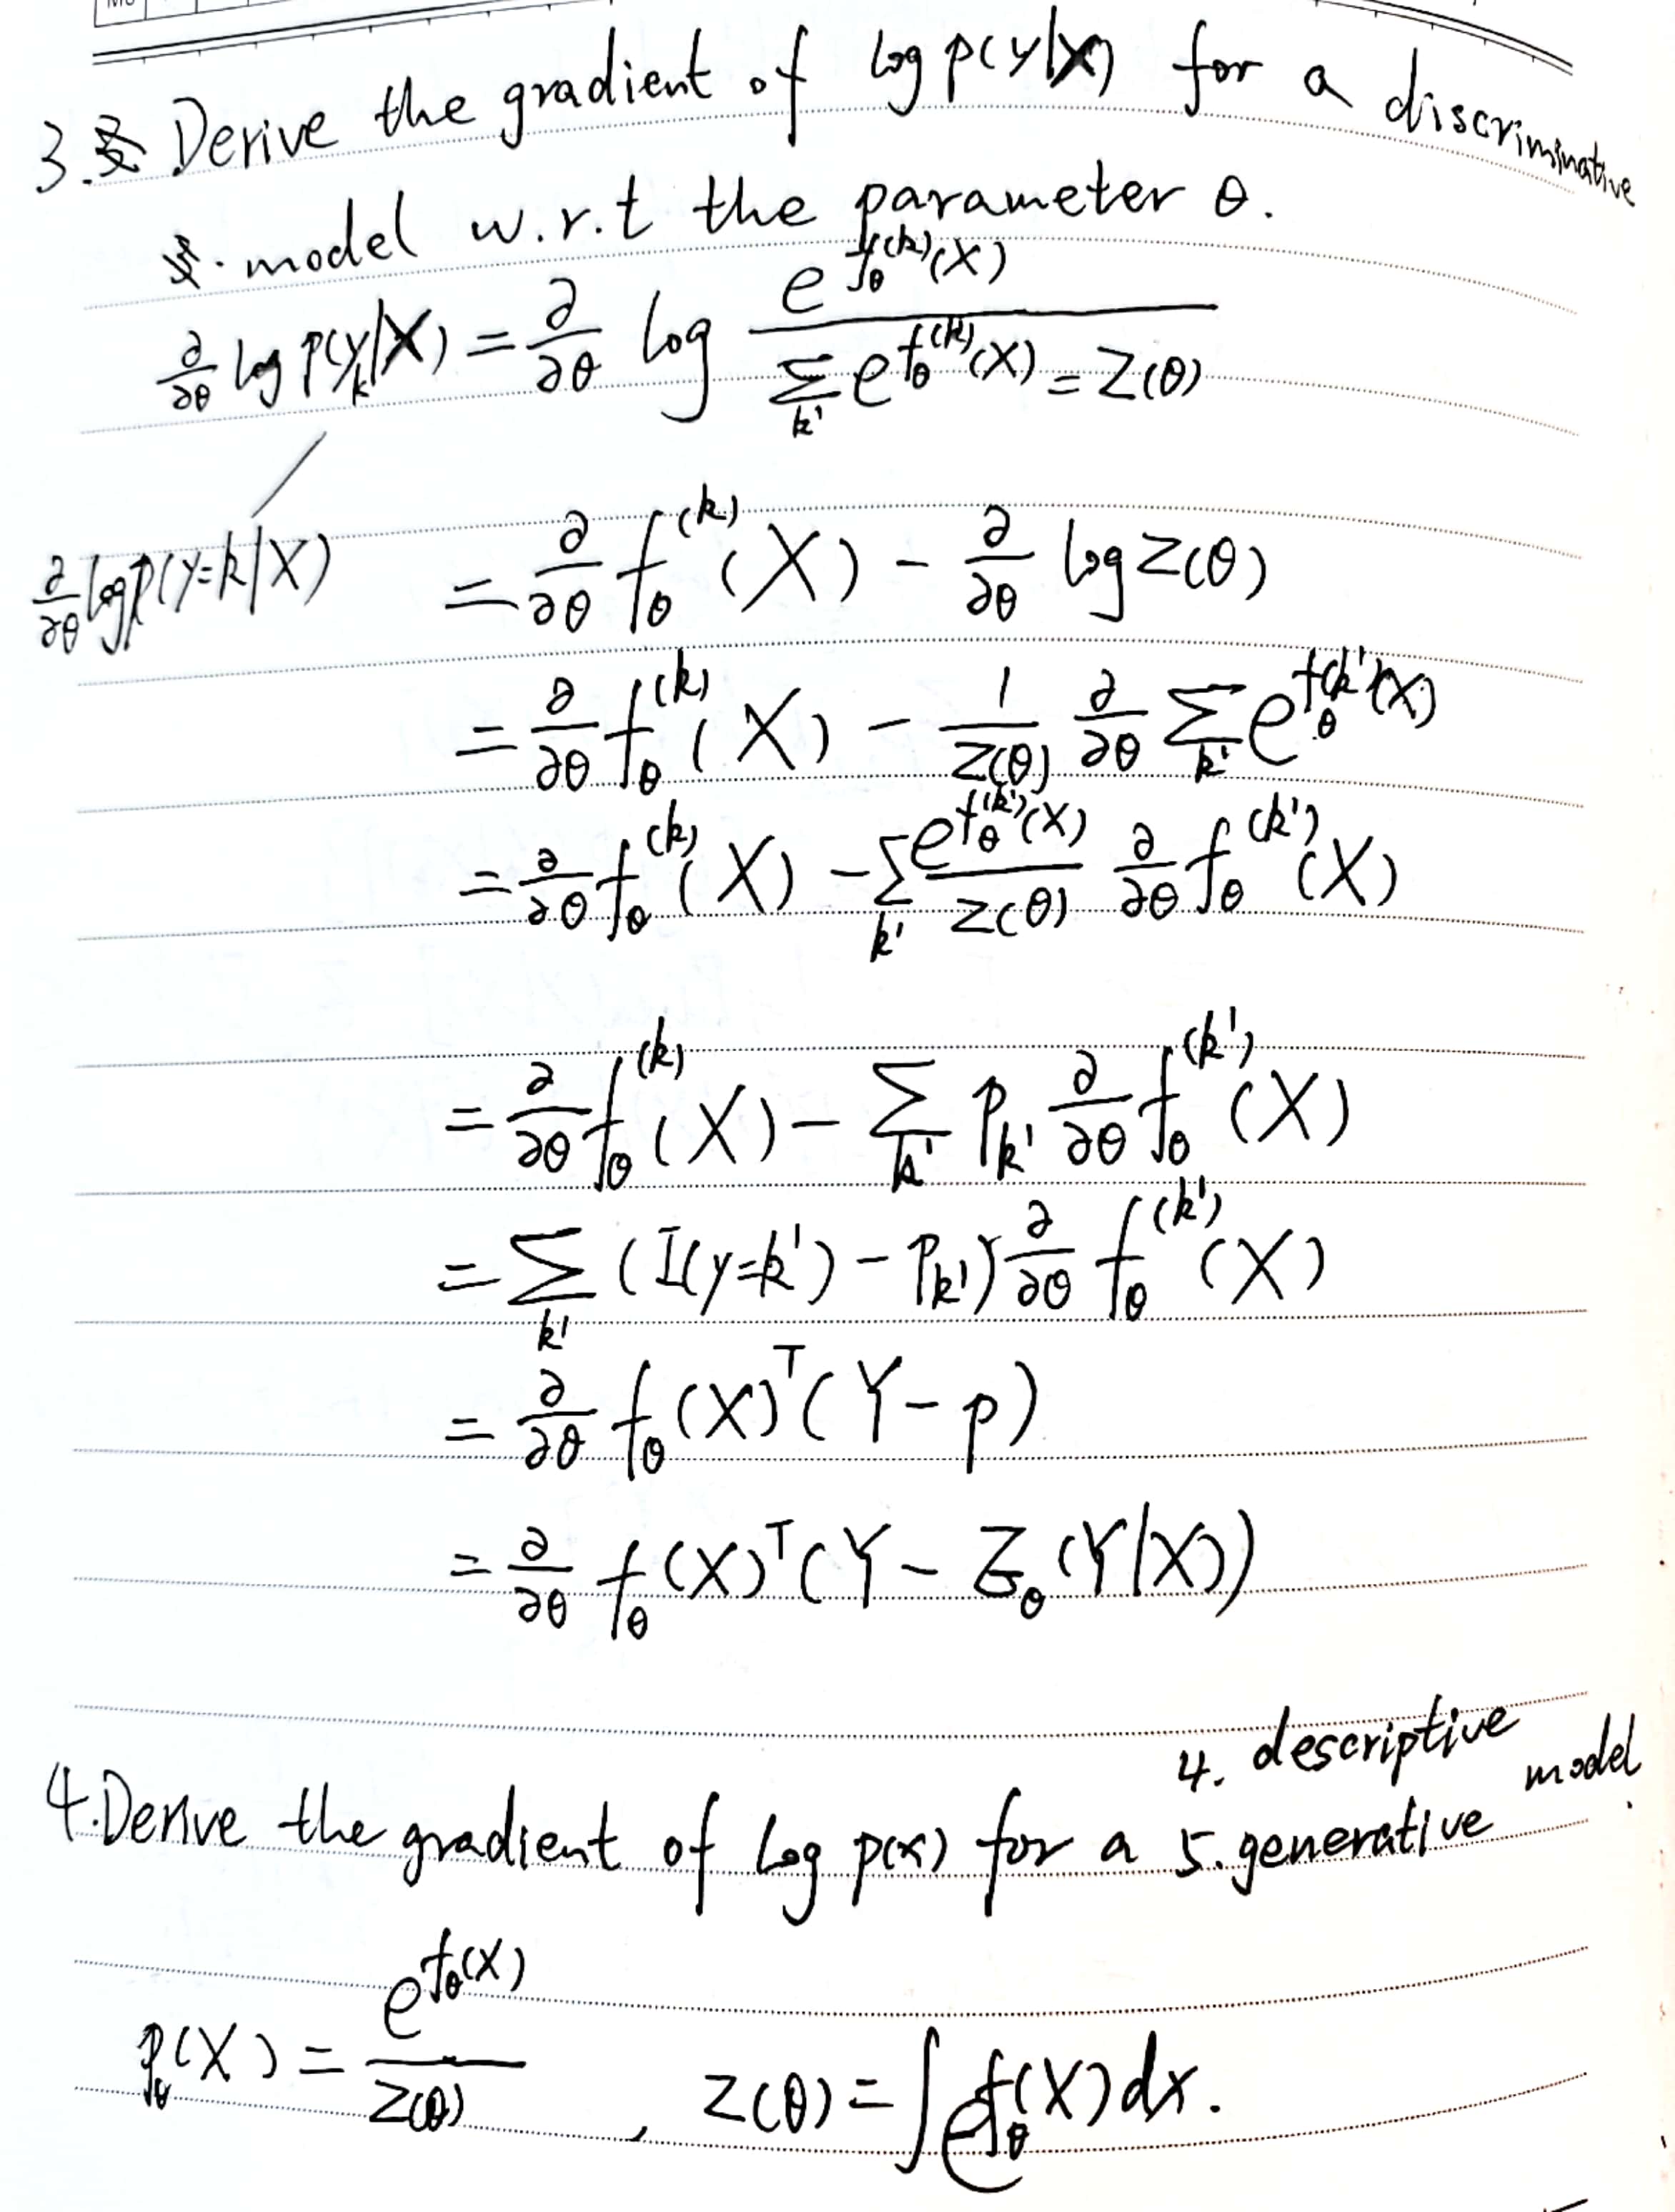 3. Derive the gradient of log p(y|X) for a discriminative
model w.r.t the parameter θ.
∂/∂θ log p(y_k|X) = ∂/∂θ log e^{f_θ^{(k)}(X)} / Σ_{k'} e^{f_θ^{(k')}(X)} = Z(θ)
∂/∂θ log p(y=k|X) = ∂/∂θ f_θ^{(k)}(X) - ∂/∂θ log Z(θ)
= ∂/∂θ f_θ^{(k)}(X) - 1/Z(θ) ∂/∂θ Σ_{k'} e^{f_θ^{(k')}(X)}
= ∂/∂θ f_θ^{(k)}(X) - Σ_{k'} e^{f_θ^{(k')}(X)}/Z(θ) ∂/∂θ f_θ^{(k')}(X)
= ∂/∂θ f_θ^{(k)}(X) - Σ_{k'} p_{k'} ∂/∂θ f_θ^{(k')}(X)
= Σ_{k'} (I(y=k') - p_{k'}) ∂/∂θ f_θ^{(k')}(X)
= ∂/∂θ f_θ(X)^T (Y - p)
= ∂/∂θ f_θ(X)^T (Y - E_θ(Y|X))
4. descriptive model.
4. Derive the gradient of log p(x) for a 5. generative
p_θ(X) = e^{f_θ(X)} / Z(θ) , Z(θ) = ∫ e^{f_θ(X)} dx.